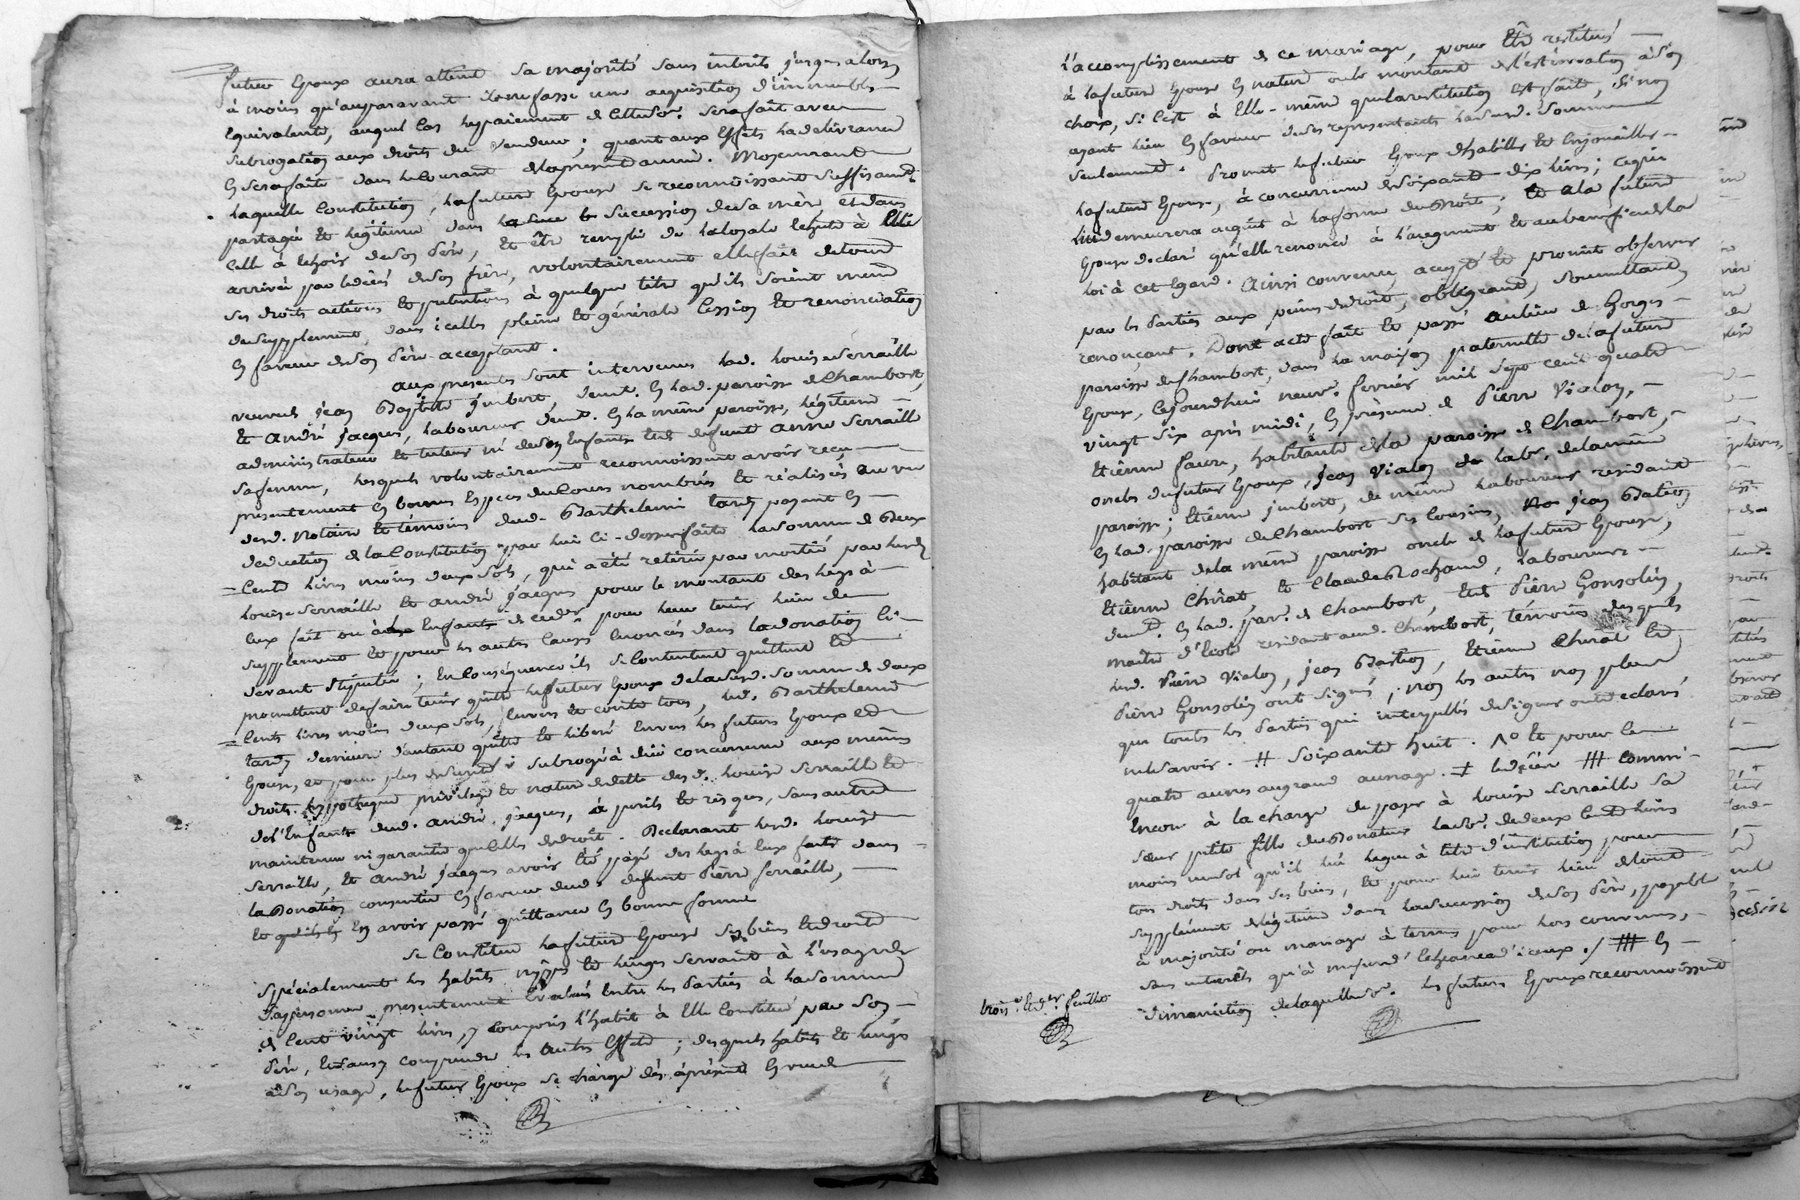 futur Epoux aura atteint sa majorité sans interets jusques alors
à moins qu'auparavant il ne fasse une acquisition d'immeubles
Equivalente, auquel cas le paiement de cette so. sera fait avec
subrogation aux droits du vendeur; quant aux Effets la delivrance
En sera faite dans le courant de la presente année. Moyennant
laquelle Constitution, la future Epouse se reconnoissant suffisamt.
partagée et legitimée dans la succession de sa mère et dans
celle à echoir de son Père, et être remplie de la loyale echute à Elle
arrivée par le décés de son frère, volontairement elle fait de tous
ses droits actions et pretentions à quelque titre qu'ils soient même
de supplement, dans icelles pleine et générale Cession et renonciation
En faveur de son Père acceptant.
aux presentes sont intervenus lad. Louise Serraille
veuve de jean Baptiste jmbert, demt. En lad. paroisse de Chambost,
et andré jacques, laboureur demt. En la même paroisse, légitime
administrateur et tuteur né de ses Enfants et de defunte anne Serraille
sa femme, lesquels volontairement reconnoissent avoir recu
presentement En bonnes Especes du Cours nombrées et réalisées au vu
desd. Notaire et témoins dud. Barthelemi tardy payant En
deduction de la Constitution par lui Ci-dessus faite la somme de Deux
Cents livres moins deux sols, qui a été retirée par moitié par lesd.
Louise Serraille et andré jacques pour le montant des legs à
eux fait ou à Enfants de ced. pour leur tenir lieu de
supplement et pour les autres Causes Enoncées dans la donation Ci-
devant stipulée; En Conséquence ils se Contentent quittent et
promettent de faire tenir quitte le futur Epoux de la susd. somme de deux
Cents livres moins deux sols, Envers et contre tous, led. Barthelemi
tardy demeure d'autant quitte et liberé Envers les futurs Epoux et
Epouse, et pour plus de sureté subrogé à düe concurrence aux mêmes
droits hypotheque privilege et nature de dette desd. Louise Serraille et
de l'Enfants dud. andré jacques, à perils et risques, sans autre
maintenue ni garantie que Celles de droit. Declarant lesd. Louise
Serraille, et andré jacques avoir été payé des legs à Eux faits dans
la Donation consentie En faveur dud. defunt Pierre Serraille,
En avoir passé quittance En bonne forme
se Constitue la future Epouse ses biens et droits
spécialement les habits nippes et linges servant à l'usage de
sa personne presentement Evalués Entre les Parties à la somme
de Cent vingt livres, y Compris l'habit à Elle Constitué par son
Père, et sans y comprendre les autres Effets; desquels habits et linges
à son usage, le futur Epoux se charge dès àprésent Ensuite
l'accomplissement de ce mariage, pour être restitués
à la future Epouse En nature ou le montant de l'estimation à son
choix, si C'est à Elle-même que la restitution Est faite, si non
ayant lieu En faveur de ses representants lad. somme
seulement. Promet le futur Epoux d'habiller et Enjoailler
la future Epouse, à concurrence de soixante dix livres; ce qui
lui demeurera acquis à la forme du Droit; et a la future
Epouse declaré qu'elle renonce à l'augment et au benefice de la
loi à cet egard. Ainsi convenu, accepté et promit observer
par les Parties aux peines de droit, obligeant, soumettant,
renonçant. Dont acte fait et passé au lieu de Gorges
paroisse de Chambost, dans la maison paternelle de la future
Epouse, cejourdhui neuf fevrier mil sept cent quatre
vingt six après midi, En présence de Pierre Vialon,
Etienne faure, habitants de la paroisse de Chambost,
oncles du futur Epoux, Jean Vialon labr. de la même
paroisse; Etienne jmbert, de même laboureur residant
En lad. paroisse de Chambost ses Cousins, jean Bation
habitant de la même paroisse oncle de la future Epouse,
Etienne Chirat et Claude Rochand, laboureurs
demt. En lad. par. de Chambost, et Pierre Gonsolin,
maitre d'Ecole residant aud. Chambost, témoins desquels
lesd. Pierre Vialon, jean Bation, Etienne Chirat et
Pierre Gonsolin ont signés, non les autres non plus
que toutes les Parties qui interpellés de signer ont declaré
ne le savoir. # soixante huit. No et pour le
quatre aunes augrand aunage. led. # commi-
Encore à la charge de payer à Louise Serraille sa
sœur petite fille du Donateur la so. de deux cents livres
moins un sol qu'il lui legue à titre d'institution pour
tous droits dans ses biens, et pour lui tenir lieu de tout
supplément de légitime dans la succession de son Père, payable
à majorité ou mariage à termes pour lors convenus,
sans interêts qu'à mesure d'echeance d'iceux ./ # En
diminution de laquelle so. les futurs Epoux reconnoissent
trois. Et der. feuillet